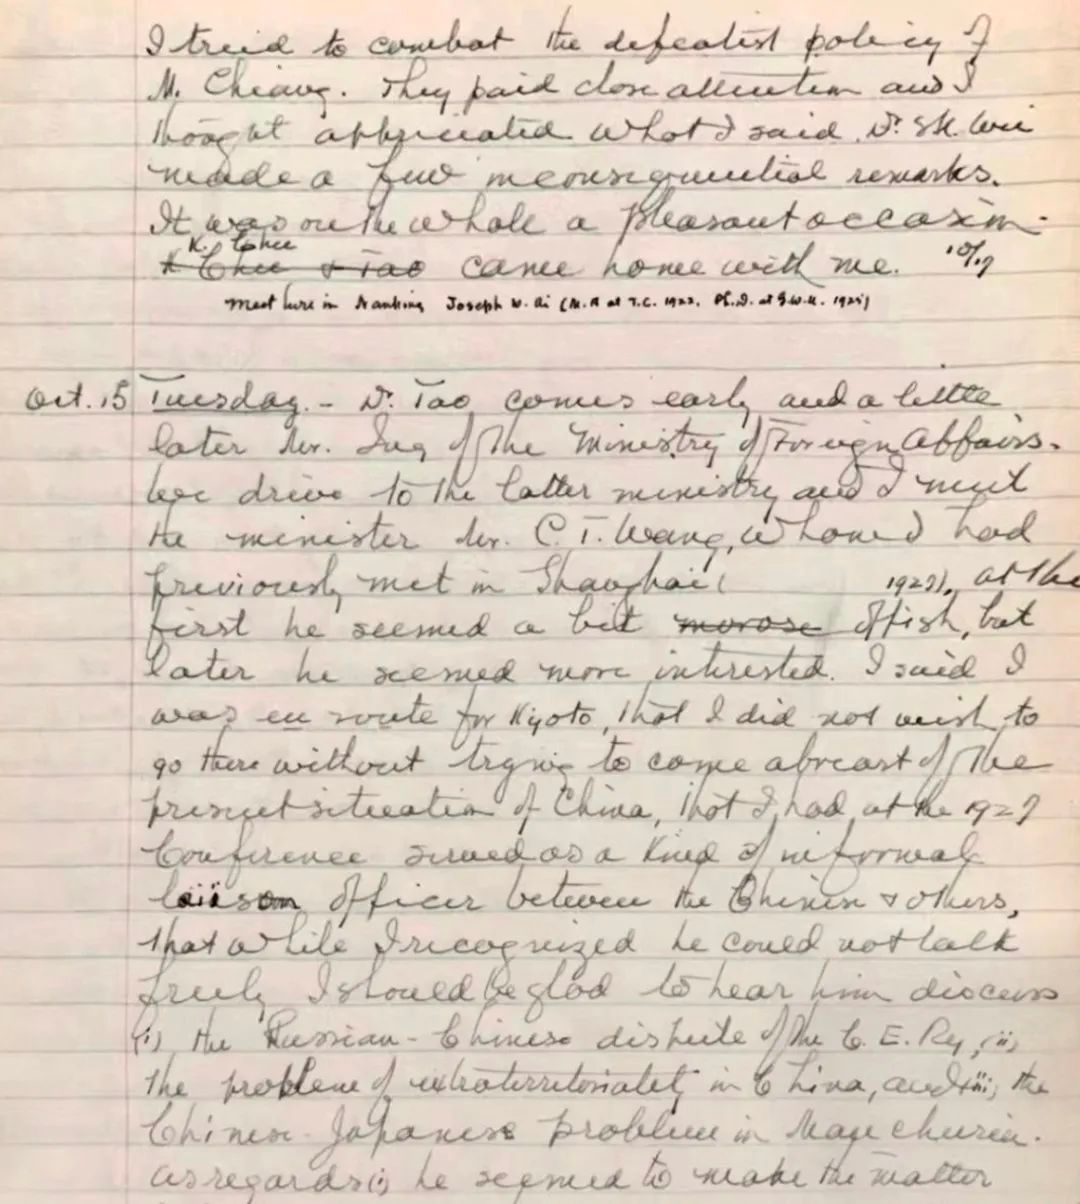 I tried to combat the defeatist policy of
M. Chiang. They paid close attention and I
thought appreciated what I said. Dr. S.K. Wu
made a few inconsequential remarks.
It was on the whole a pleasant occasion.
K. Chu
Chu & Tao came home with me.
Meet here in Nanking Joseph W. (M.A at T.C. 1922. Ph.D. at G.W.U. 1925)
Oct. 15 Tuesday. - Dr. Tao comes early and a little
later Mr. of the Ministry of Foreign Affairs.
We drive to the latter ministry and I meet
the minister Mr. C. T. Wang, whom I had
previously met in Shanghai ( 1927), at the
first he seemed a bit morose offish, but
later he seemed more interested. I said I
was en route for Kyoto, that I did not wish to
go there without trying to come abreast of the
present situation of China, that I had, at the 1927
Conference served as a kind of informal
liaison officer between the Chinese & others,
that while I recognized he could not talk
freely I should be glad to hear him discuss
(i) the Russian-Chinese dispute of the C. E. Ry, (ii)
the problem of extraterritoriality in China, and (iii) the
Chinese-Japanese problem in Manchuria.
As regards (i) he seemed to make the matter